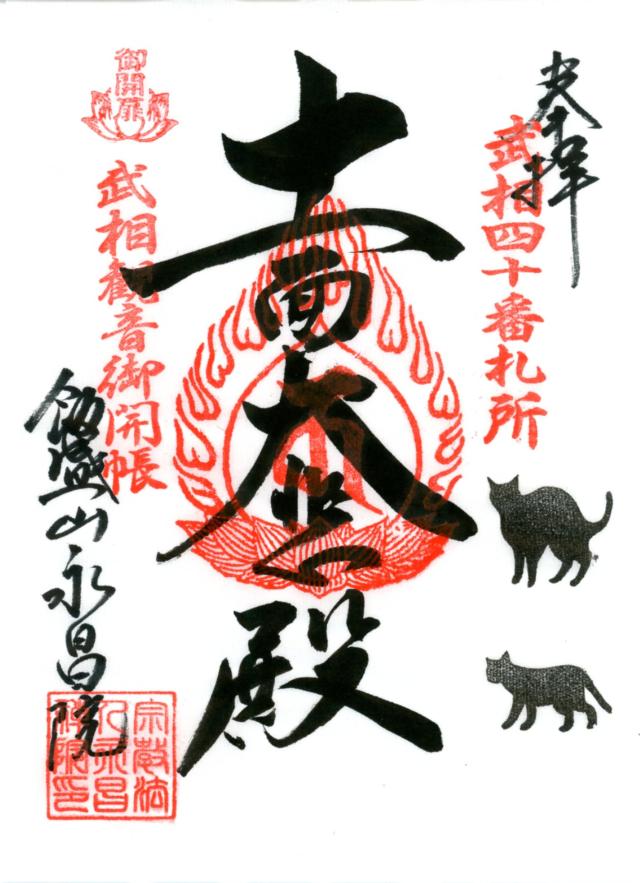 奉拝
武相四十番札所
十一面大悲殿
御開扉
武相観音御開帳
飯盛山永昌院
宗教法
人永昌
院印